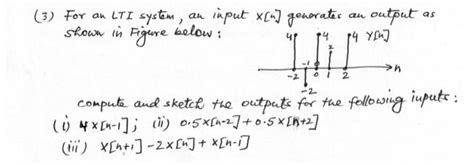 (3) For an LTI system, an input x[n] generates an output as
shown in Figure below:
4 4 4 y[n]
2
-1
-2 0 1 2 n
-2
compute and sketch the outputs for the following inputs:
(i) 4x[n-1]; (ii) 0.5x[n-2]+0.5x[n+2]
(iii) x[n+1]-2x[n]+x[n-1]